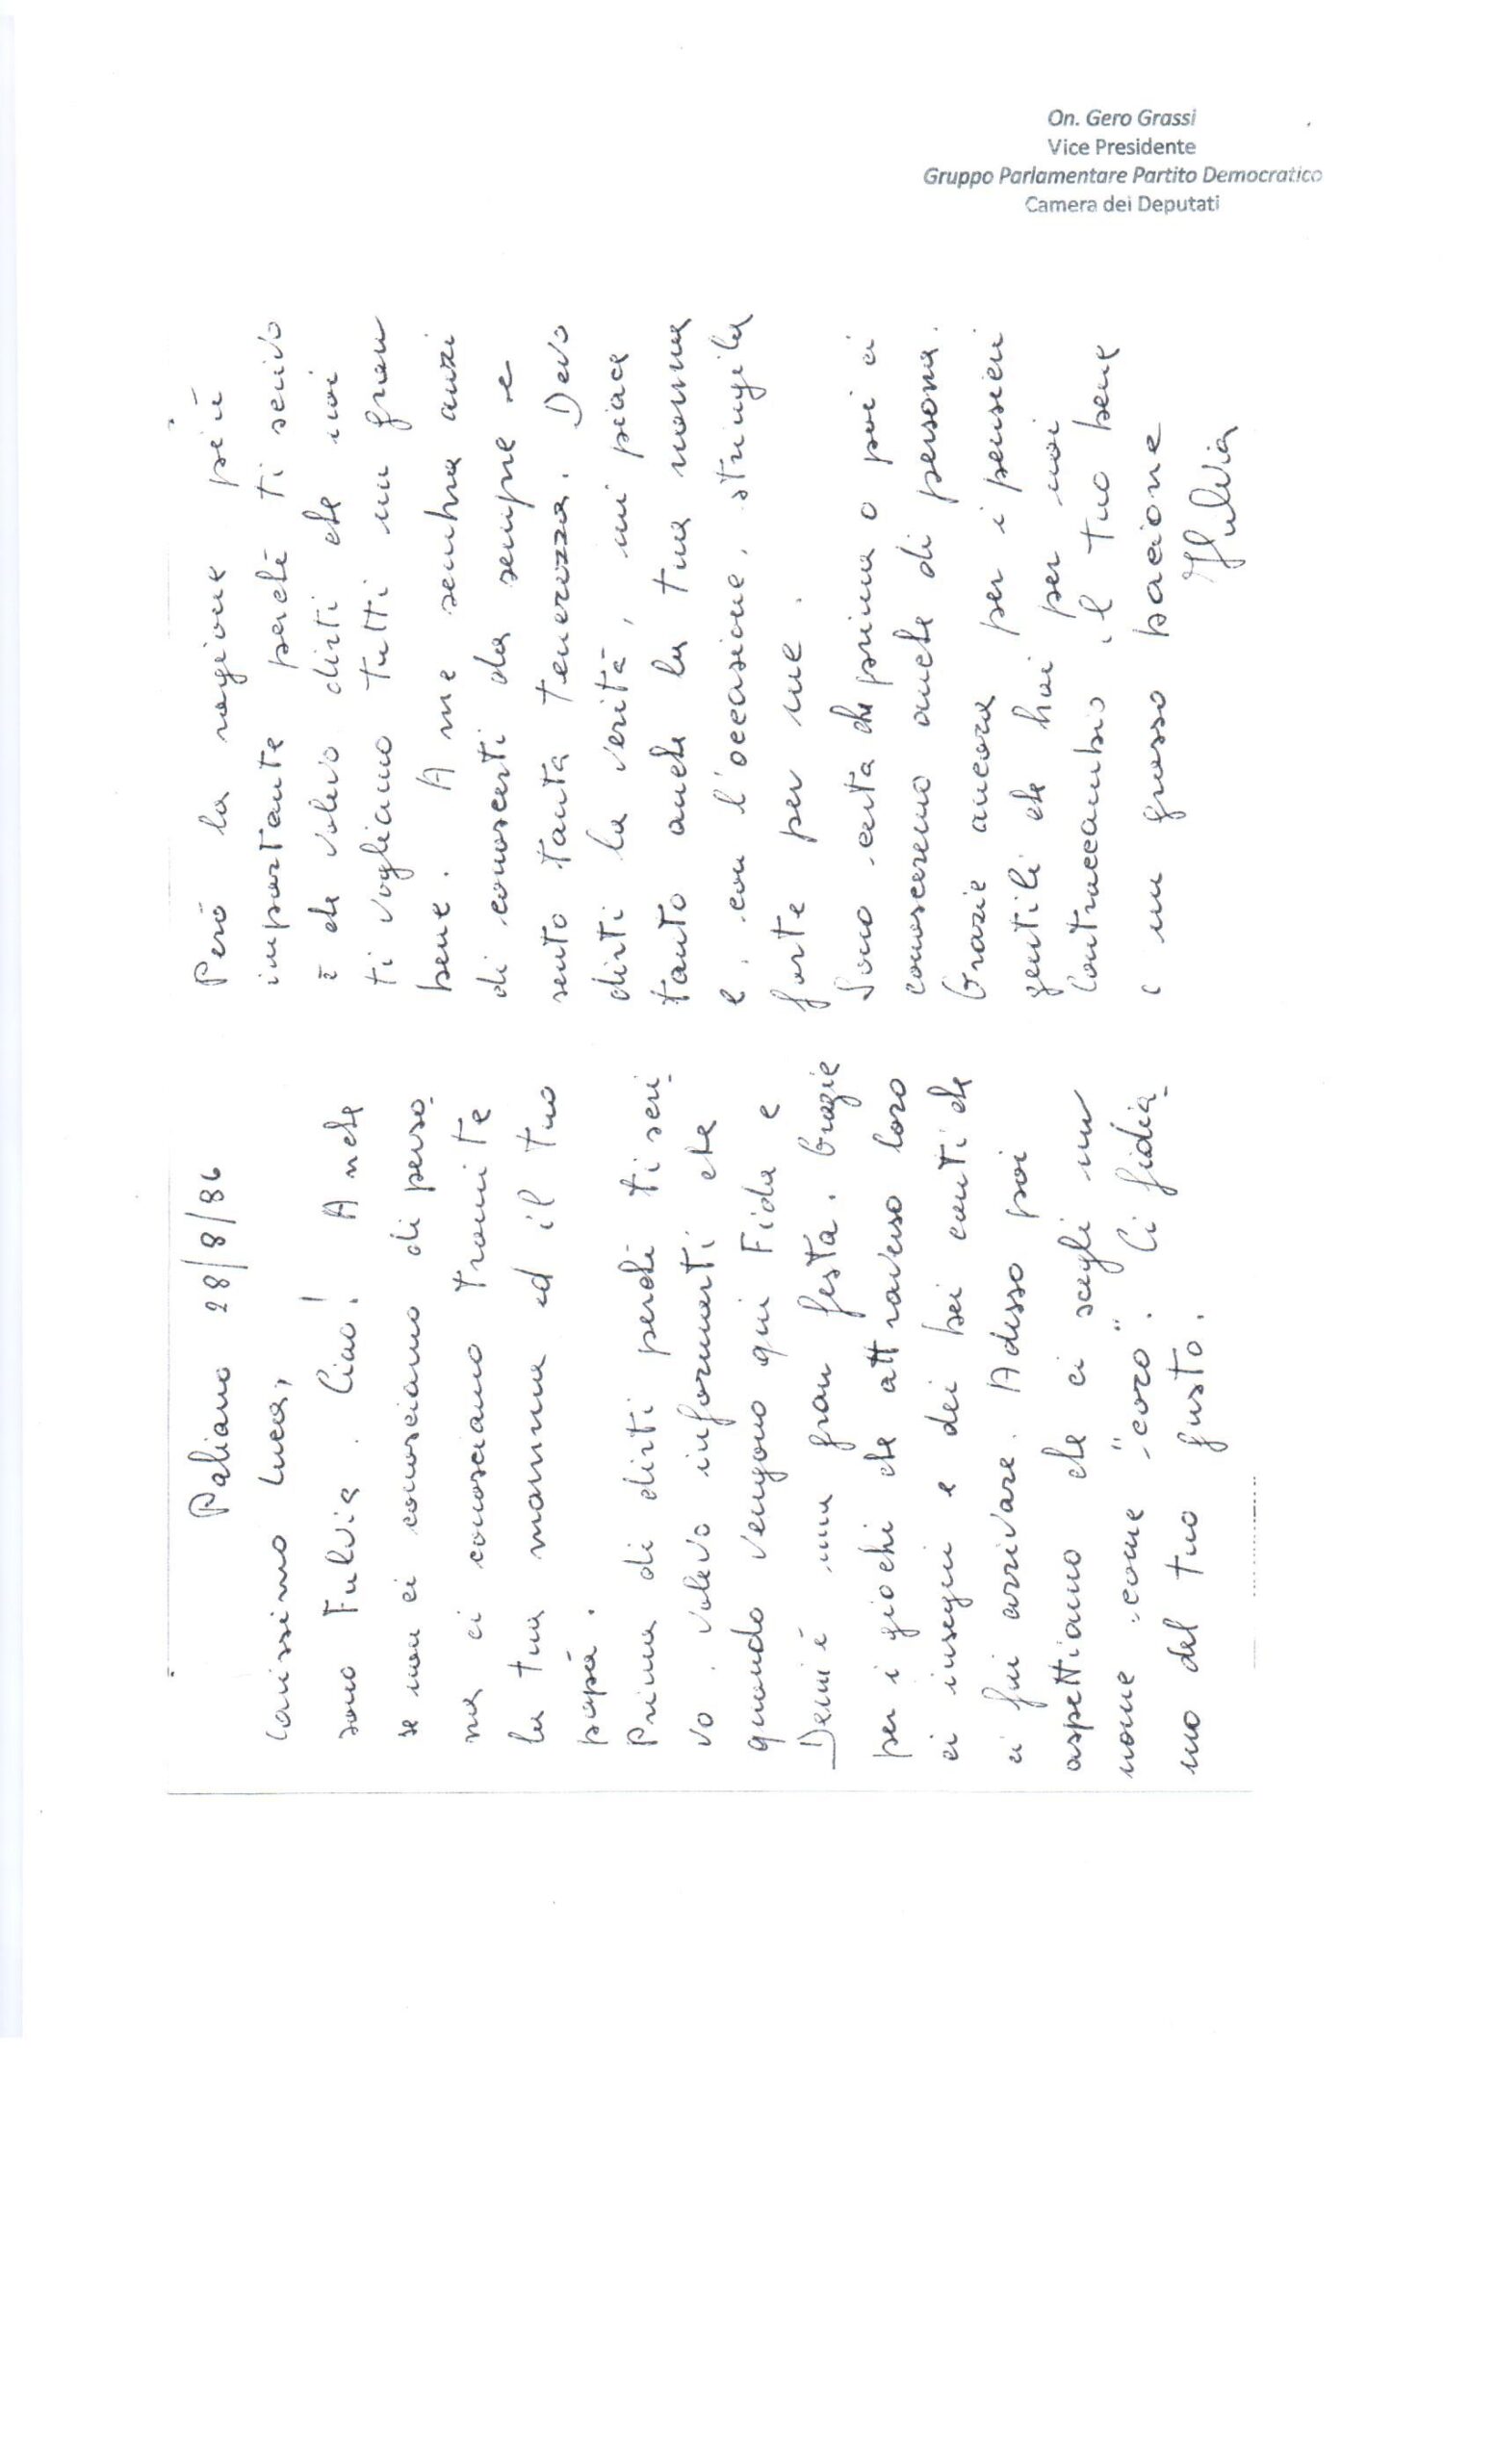 On. Gero Grassi
Vice Presidente
Gruppo Parlamentare Partito Democratico
Camera dei Deputati
Paliano 28/8/86
Carissimo Luca,
sono Fulvia. Ciao! Anche
se non ci conosciamo di perso-
na ci conosciamo tramite
la tua mamma ed il tuo
papà.
Prima di dirti perché ti scri-
vo, volevo informarti che
quando vengono qui Fida e
Demi è una gran festa. Grazie
per i giochi che attraverso loro
ci insegni e dei bei canti che
ci fai arrivare. Adesso poi
aspettiamo che ci scegli un
nome come "coro". Ci fidia-
mo del tuo gusto.
Però la ragione più
importante perché ti scrivo
è che volevo dirti che noi
ti vogliamo tutti un gran
bene. A me sembra anzi
di conoscerti da sempre e
sento tanta tenerezza. Devo
dirti la verità, mi piace
tanto anche la tua nonna
e, con l'occasione, stringila
forte per me.
Sono certa che prima o poi ci
conosceremo anche di persona.
Grazie ancora per i pensieri
gentili che hai per noi
Contraccambio il tuo bene
un grosso bacione
Fulvia